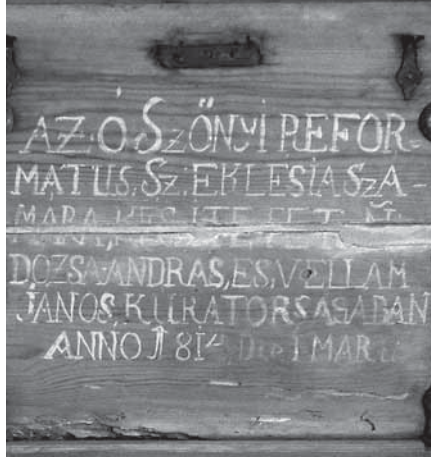 AZ·Ó·SzŐNyi REFOR-
MATUS, Sz: EKLESIA SzA-
MARA, KESZITTETETT. N:
DOZSA·ANDRAS, ES, VELLAM
JÁNOS, KURATORSAGABAN
ANNO 181 Die 1 MARTii